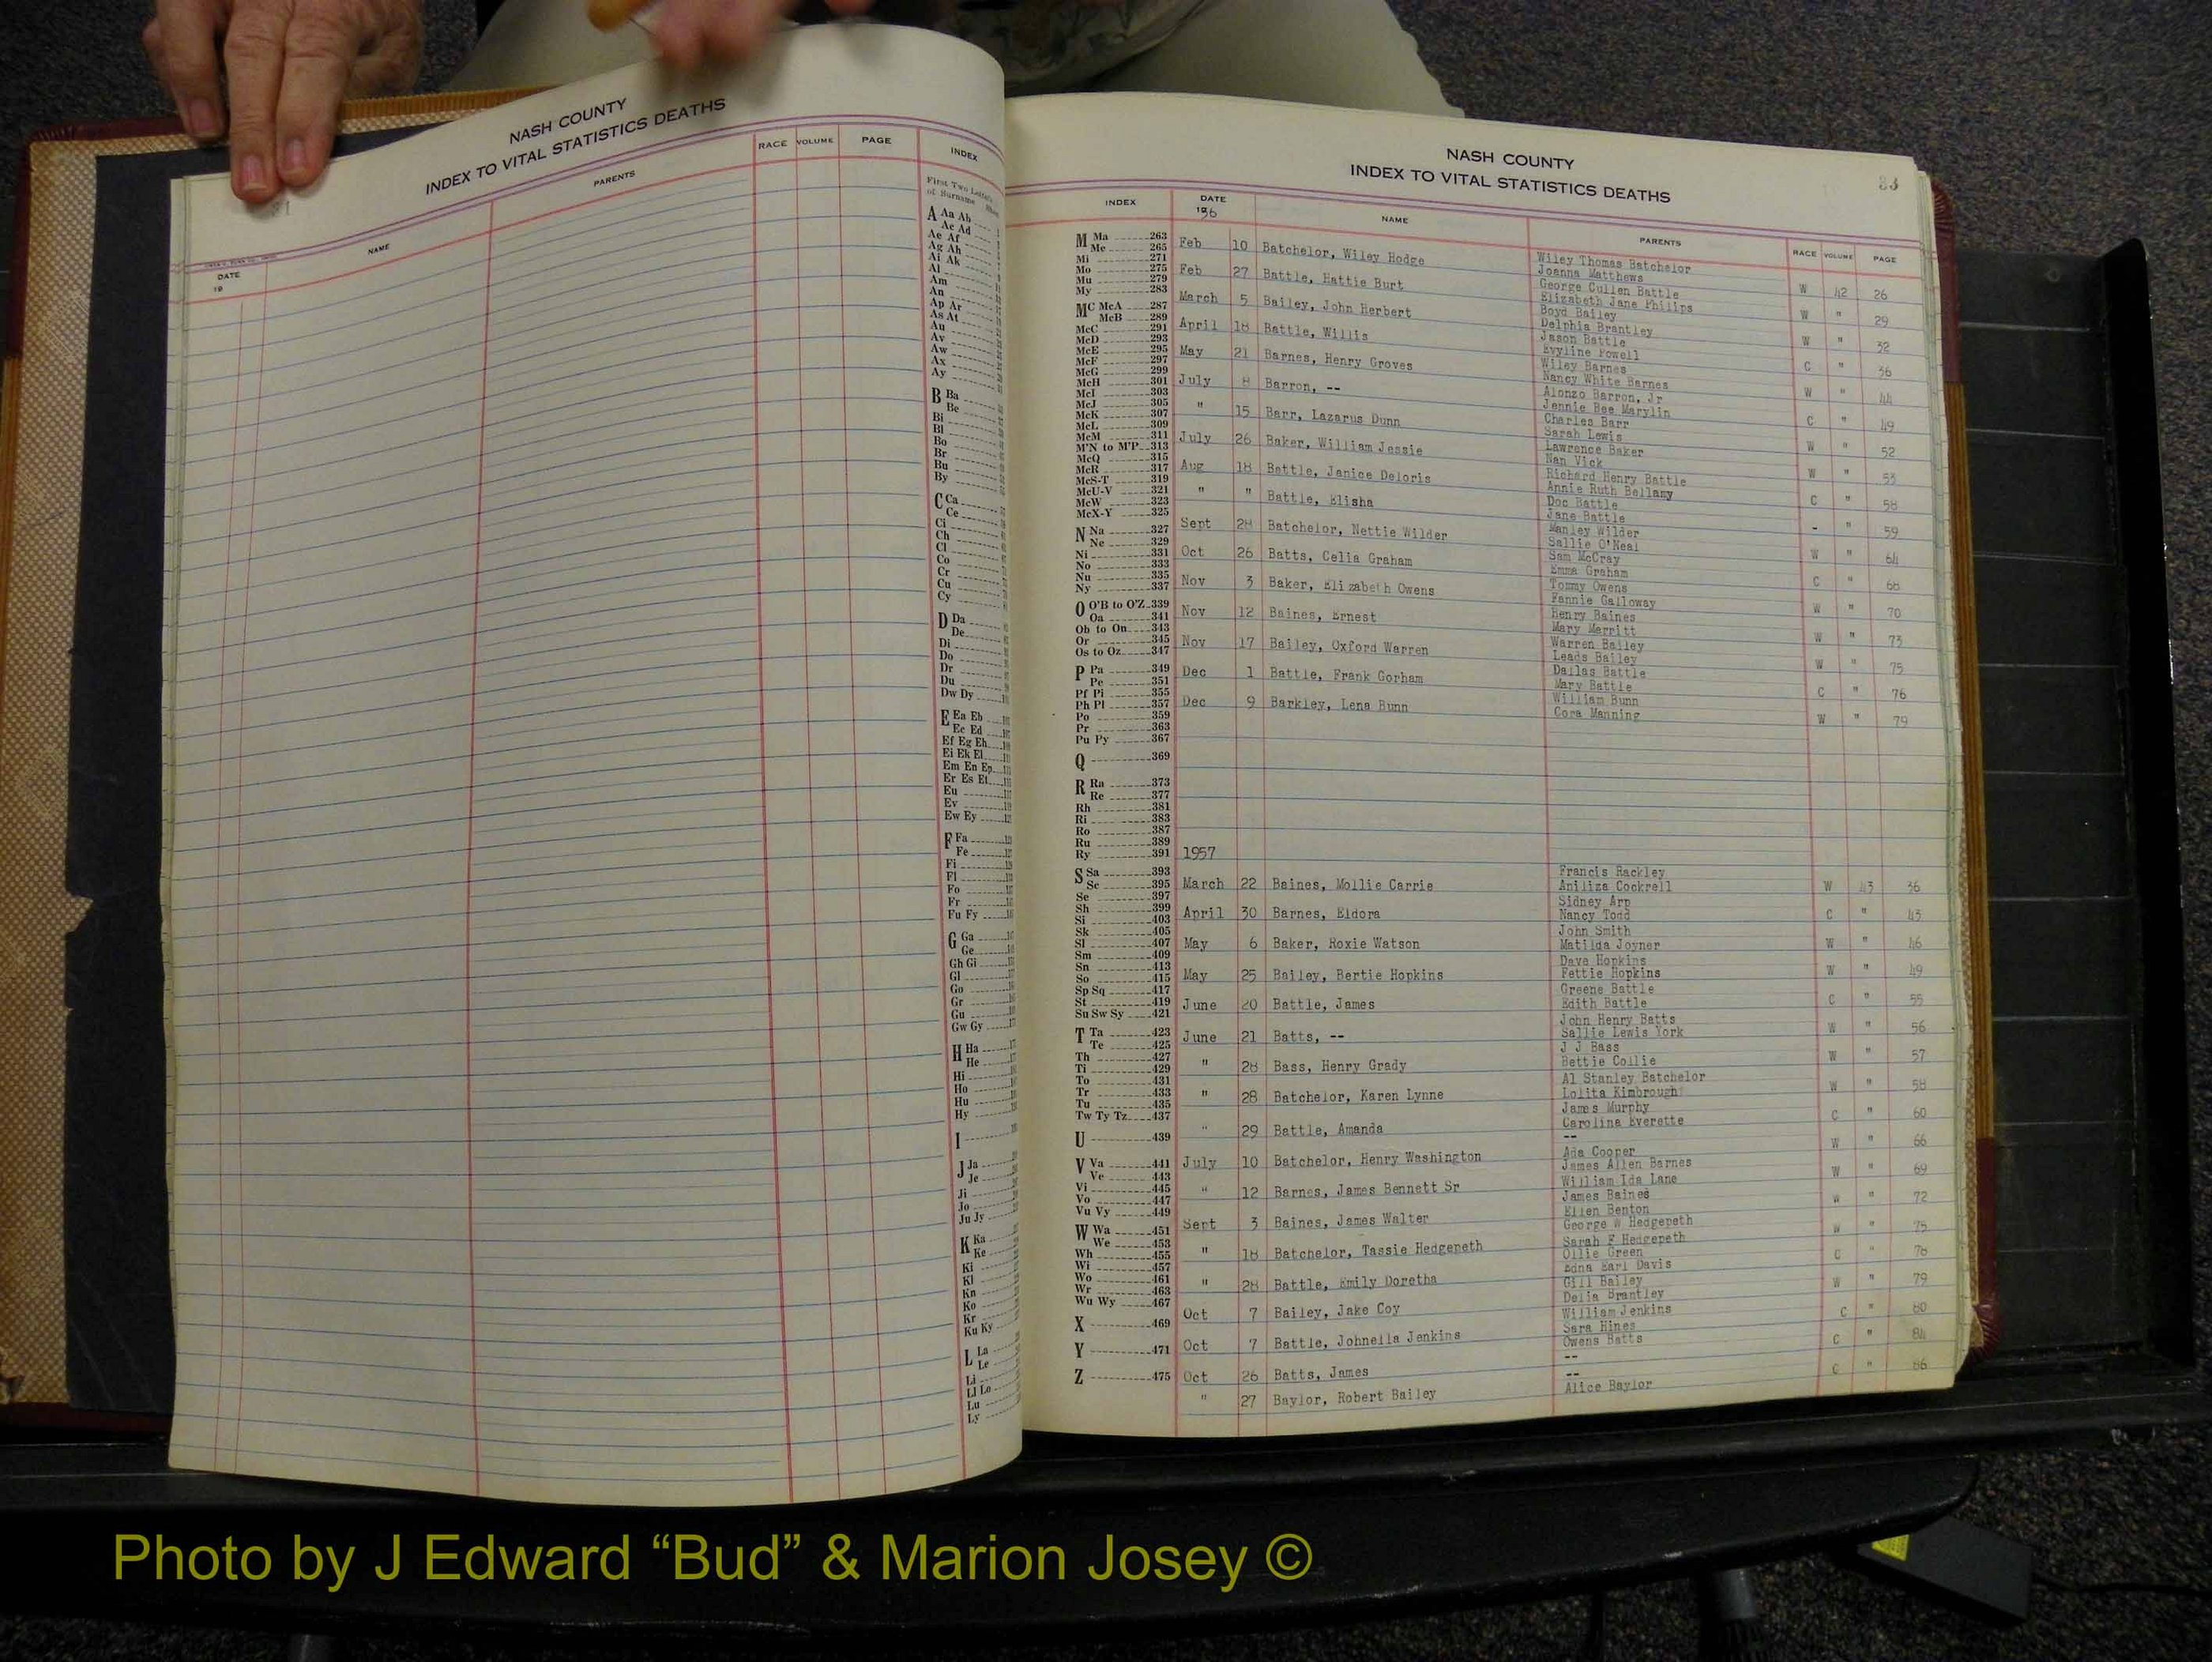 NASH COUNTY
INDEX TO VITAL STATISTICS DEATHS
DATE
19
NAME
PARENTS
RACE
VOLUME
PAGE
INDEX
First Two Letters
of Surname
A Aa Ab
Ac Ad
Ae Af
Ag Ah
Ai Ak
Al
Am
An
Ap Ar
As At
Au
Av
Aw
Ax
Ay
B Ba
Be
Bi
Bl
Bo
Br
Bu
By
C Ca
Ce
Ci
Ch
Cl
Co
Cr
Cu
Cy
D Da
De
Di
Do
Dr
Du
Dw Dy
E Ea Eb
Ec Ed
Ef Eg Eh
Ei Ek El
Em En Ep
Er Es Et
Eu
Ev
Ew Ey
F Fa
Fe
Fi
Fl
Fo
Fr
Fu Fy
G Ga
Ge
Gh Gi
Gl
Go
Gr
Gu
Gw Gy
H Ha
He
Hi
Ho
Hu
Hy
I
J Ja
Je
Ji
Jo
Ju Jy
K Ka
Ke
Ki
Kl
Kn
Ko
Kr
Ku Ky
L La
Le
Li
Ll Lo
Lu
Ly
NASH COUNTY
INDEX TO VITAL STATISTICS DEATHS
33
INDEX
DATE
1956
NAME
PARENTS
RACE
VOLUME
PAGE
M Ma 263
Me 265
Mi 271
Mo 275
Mu 279
My 283
MC McA 287
McB 289
McC 291
McD 293
McE 295
McF 297
McG 299
McH 301
McI 303
McJ 305
McK 307
McL 309
McM 311
M'N to M'P 313
McQ 315
McR 317
McS-T 319
McU-V 321
McW 323
McX-Y 325
N Na 327
Ne 329
Ni 331
No 333
Nu 335
Ny 337
O O'B to O'Z 339
Oa 341
Ob to On 343
Or 345
Os to Oz 347
P Pa 349
Pe 351
Pf Pi 355
Ph Pl 357
Po 359
Pr 363
Pu Py 367
Q 369
R Ra 373
Re 377
Rh 381
Ri 383
Ro 387
Ru 389
Ry 391
S Sa 393
Sc 395
Se 397
Sh 399
Si 403
Sk 405
Sl 407
Sm 409
Sn 413
So 415
Sp Sq 417
St 419
Su Sw Sy 421
T Ta 423
Te 425
Th 427
Ti 429
To 431
Tr 433
Tu 435
Tw Ty Tz 437
U 439
V Va 441
Ve 443
Vi 445
Vo 447
Vu Vy 449
W Wa 451
We 453
Wh 455
Wi 457
Wo 461
Wr 463
Wu Wy 467
X 469
Y 471
Z 475
Feb 10 Batchelor, Wiley Hodge Wiley Thomas Batchelor
Joanna Matthews W 42 26
Feb 27 Battle, Hattie Burt George Cullen Battle
Elizabeth Jane Philips W " 29
March 5 Bailey, John Herbert Boyd Bailey
Delphia Brantley W " 32
April 18 Battle, Willis Jason Battle
Evyline Powell C " 36
May 21 Barnes, Henry Groves Wiley Barnes
Nancy White Barnes W " 44
July 8 Barron, -- Alonzo Barron, Jr
Jennie Bee Marylin C " 49
" 15 Barr, Lazarus Dunn Charles Barr
Sarah Lewis W " 52
July 26 Baker, William Jessie Lawrence Baker
Nan Vick W " 53
Aug 18 Battle, Janice Deloris Richard Henry Battle
Annie Ruth Bellamy C " 58
" " Battle, Elisha Doc Battle
Jane Battle - " 59
Sept 28 Batchelor, Nettie Wilder Manley Wilder
Sallie O'Neal W " 64
Oct 26 Batts, Celia Graham Sam McCray
Emma Graham C " 68
Nov 3 Baker, Elizabeth Owens Tommy Owens
Fannie Galloway W " 70
Nov 12 Baines, Ernest Henry Baines
Mary Merritt W " 73
Nov 17 Bailey, Oxford Warren Warren Bailey
Leads Bailey W " 75
Dec 1 Battle, Frank Gorham Dallas Battle
Mary Battle C " 76
Dec 9 Barkley, Lena Bunn William Bunn
Cora Manning W " 79
1957
Francis Rackley
March 22 Baines, Mollie Carrie Aniliza Cockrell W 43 36
Sidney Arp
April 30 Barnes, Eldora Nancy Todd C " 43
John Smith
May 6 Baker, Roxie Watson Matilda Joyner W " 46
Dave Hopkins
May 25 Bailey, Bertie Hopkins Fettie Hopkins W " 49
Greene Battle
June 20 Battle, James Edith Battle C " 55
John Henry Batts
June 21 Batts, -- Sallie Lewis York W " 56
J J Bass
" 28 Bass, Henry Grady Bettie Collie W " 57
Al Stanley Batchelor
" 28 Batchelor, Karen Lynne Lolita Kimbrough W " 58
James Murphy
" 29 Battle, Amanda Carolina Everette C " 60
--
July 10 Batchelor, Henry Washington Ada Cooper W " 66
James Allen Barnes
" 12 Barnes, James Bennett Sr William Ida Lane W " 69
James Baines
Sept 3 Baines, James Walter Ellen Benton W " 72
George W Hedgepeth
" 18 Batchelor, Tassie Hedgepeth Sarah F Hedgepeth W " 75
Ollie Green
" 28 Battle, Emily Doretha Edna Earl Davis C " 78
Gill Bailey
Oct 7 Bailey, Jake Coy Delia Brantley W " 79
William Jenkins
Oct 7 Battle, Johnella Jenkins Sara Hines C " 80
Owens Batts
Oct 26 Batts, James -- C " 84
--
" 27 Baylor, Robert Bailey Alice Baylor C " 86
Photo by J Edward “Bud” & Marion Josey ©